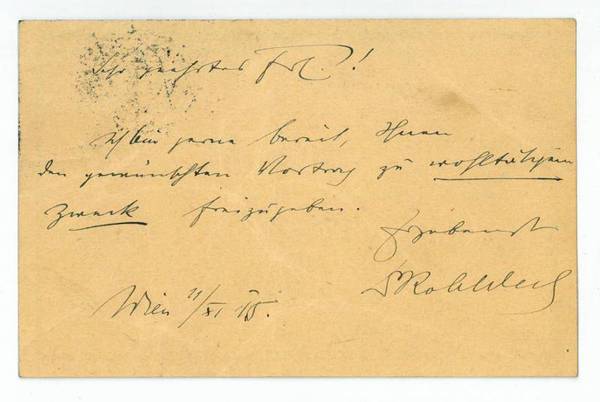 Sehr geehrtes Frl.!
Ich bin gerne bereit, Ihnen
den gewünschten Vortrag zu wohltätigem
Zweck freizugeben.
Ergebenst
Wien 11/XI